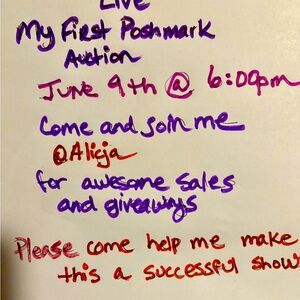 Live
My First Poshmark
Auction
June 9th @ 6:00pm
Come and join me
@Alicja
for awesome sales
and giveaways
Please come help me make
this a successful show